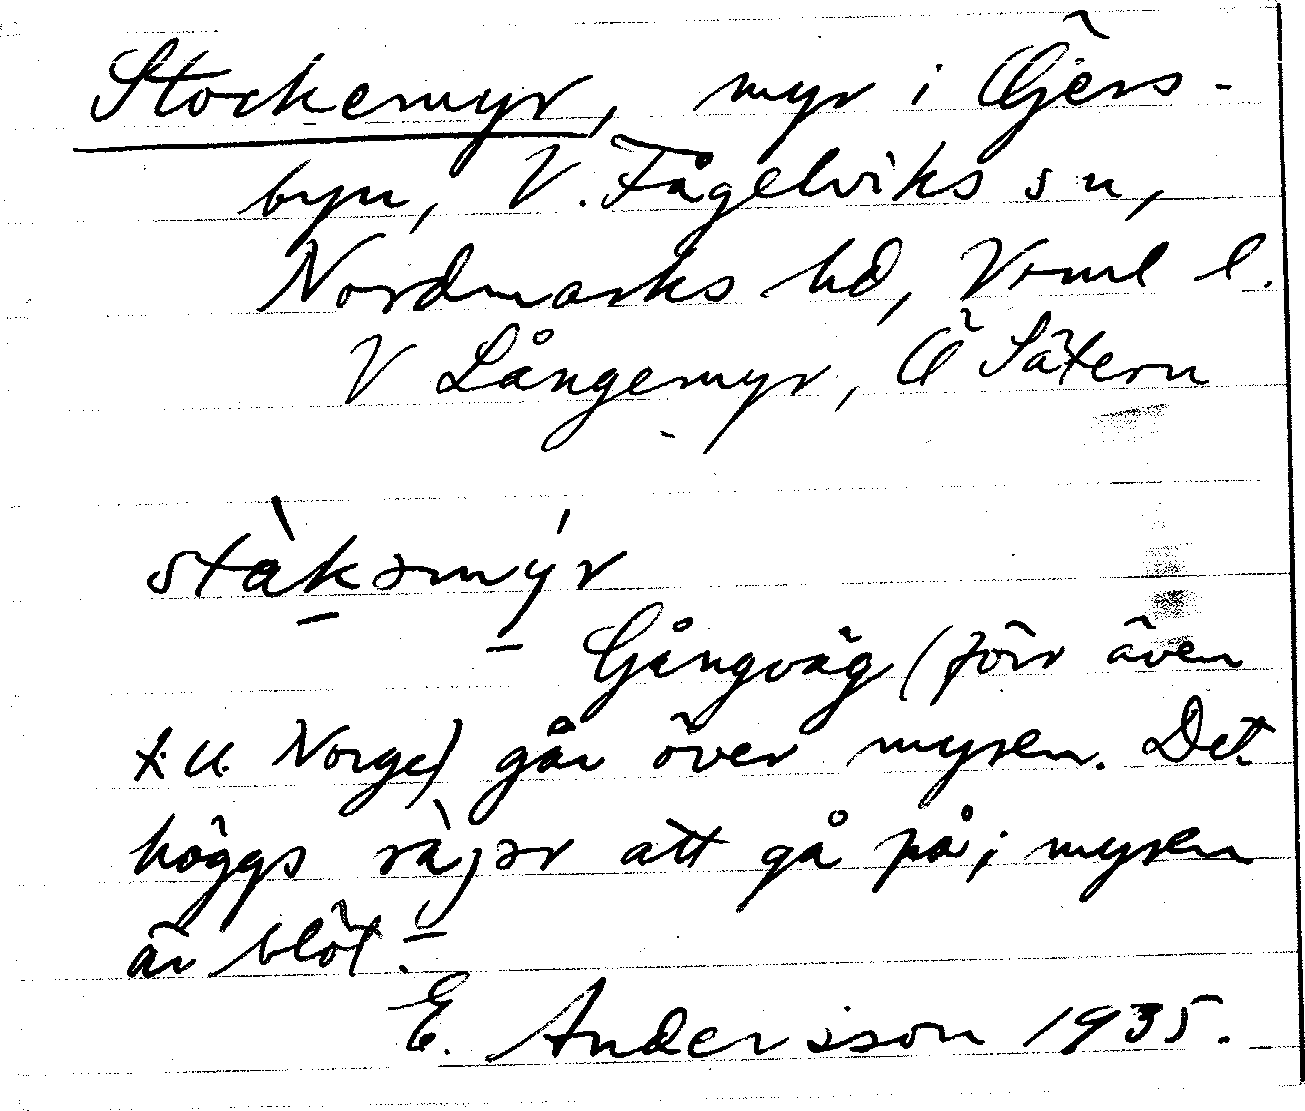 Stockemyr, myr i Öjers-
byn, V. Fågelviks sn,
Nordmarks hd, Värml l.
V Långemyr, Ö Sätern
stàkəmy̍r
Gångväg (förr även
t. u. Norge) går över myren. Det
höggs ràjər att gå på; myren
är blöt.
E. Andersson 1935.